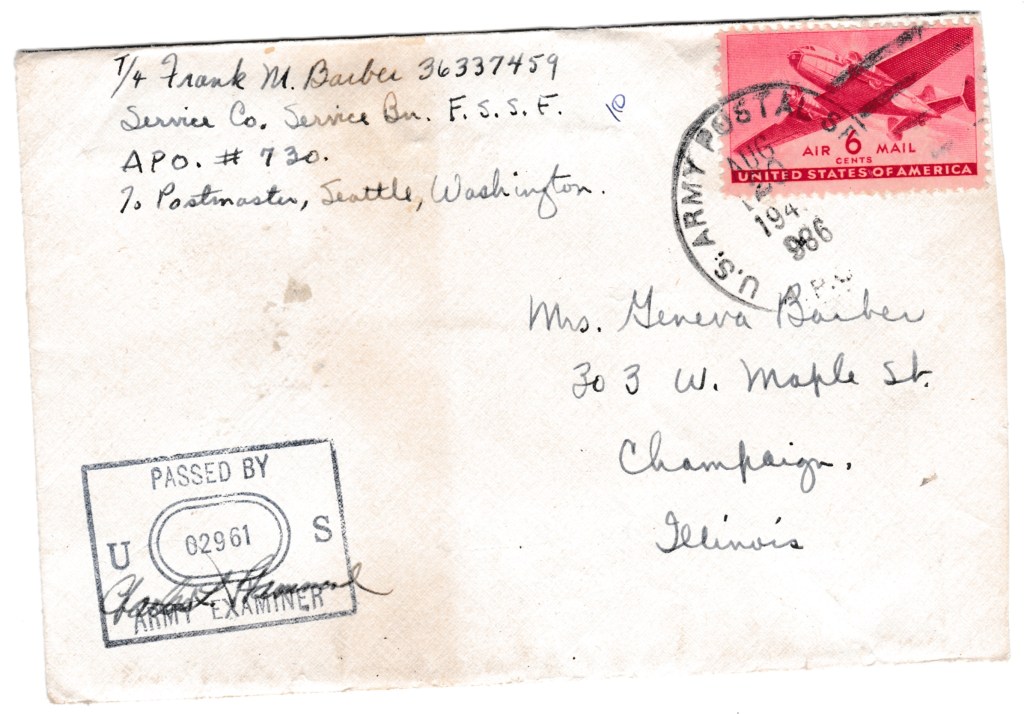 T/4 Frank M. Barber 36337459
Service Co. Service Bn. F.S.S.F.
APO. # 730.
℅ Postmaster, Seattle, Washington.
10
AIR 6 MAIL
CENTS
UNITED STATES OF AMERICA
U.S. ARMY POSTAL
AUG
194
986
A.P.O
Mrs. Geneva Barber
303 W. Maple St.
Champaign,
Illinois
PASSED BY
U 02961 S
ARMY EXAMINER